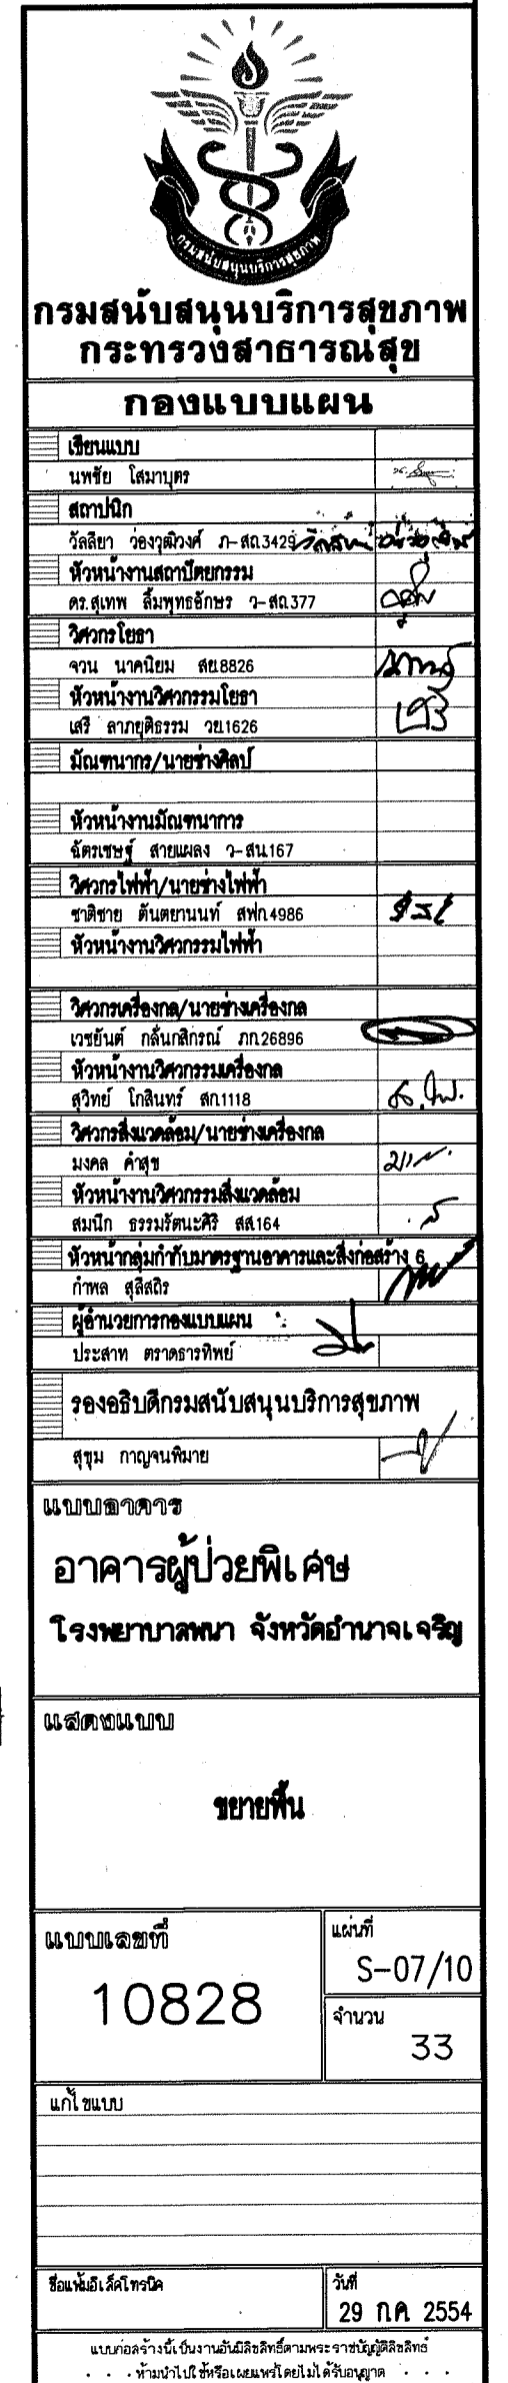 กรมสนับสนุนบริการสุขภาพ
กรมสนับสนุนบริการสุขภาพ
กระทรวงสาธารณสุข
กองแบบแผน
เขียนแบบ
นพชัย โสมาบุตร
สถาปนิก
วัลลิยา ว่องวุฒิวงศ์ ภ-สถ.3429
หัวหน้างานสถาปัตยกรรม
ดร.สุเทพ ลิ้มพุทธอักษร ว-สถ.377
วิศวกรโยธา
จวน นาคนิยม สย.8826
หัวหน้างานวิศวกรรมโยธา
เสรี ลาภยุติธรรม วย.1626
มัณฑนากร/นายช่างศิลป์
หัวหน้างานมัณฑนาการ
ฉัตรเชษฐ์ สายแผลง ว-สน.167
วิศวกรไฟฟ้า/นายช่างไฟฟ้า
ชาติชาย ตันตยานนท์ สฟก.4986
หัวหน้างานวิศวกรรมไฟฟ้า
วิศวกรเครื่องกล/นายช่างเครื่องกล
เวชยันต์ กลั่นกสิกรณ์ ภก.26896
หัวหน้างานวิศวกรรมเครื่องกล
สุวิทย์ โกสินทร์ สก.1118
วิศวกรสิ่งแวดล้อม/นายช่างเครื่องกล
มงคล คำสุข
หัวหน้างานวิศวกรรมสิ่งแวดล้อม
สมนึก ธรรมรัตนะศิริ สส.164
หัวหน้ากลุ่มกำกับมาตรฐานอาคารและสิ่งก่อสร้าง 6
กำพล สุลีสถิร
ผู้อำนวยการกองแบบแผน
ประสาท ตราดธารทิพย์
รองอธิบดีกรมสนับสนุนบริการสุขภาพ
สุขุม กาญจนพิมาย
แบบอาคาร
อาคารผู้ป่วยพิเศษ
โรงพยาบาลพนา จังหวัดอำนาจเจริญ
แสดงแบบ
ขยายพื้น
แบบเลขที่
10828
แผ่นที่
S-07/10
จำนวน
33
แก้ไขแบบ
ชื่อแฟ้มอิเล็คโทรนิค
วันที่
29 ก.ค. 2554
แบบก่อสร้างนี้เป็นงานอันมีลิขสิทธิ์ตามพระราชบัญญัติลิขสิทธิ์
ห้ามนำไปใช้หรือเผยแพร่โดยไม่ได้รับอนุญาต